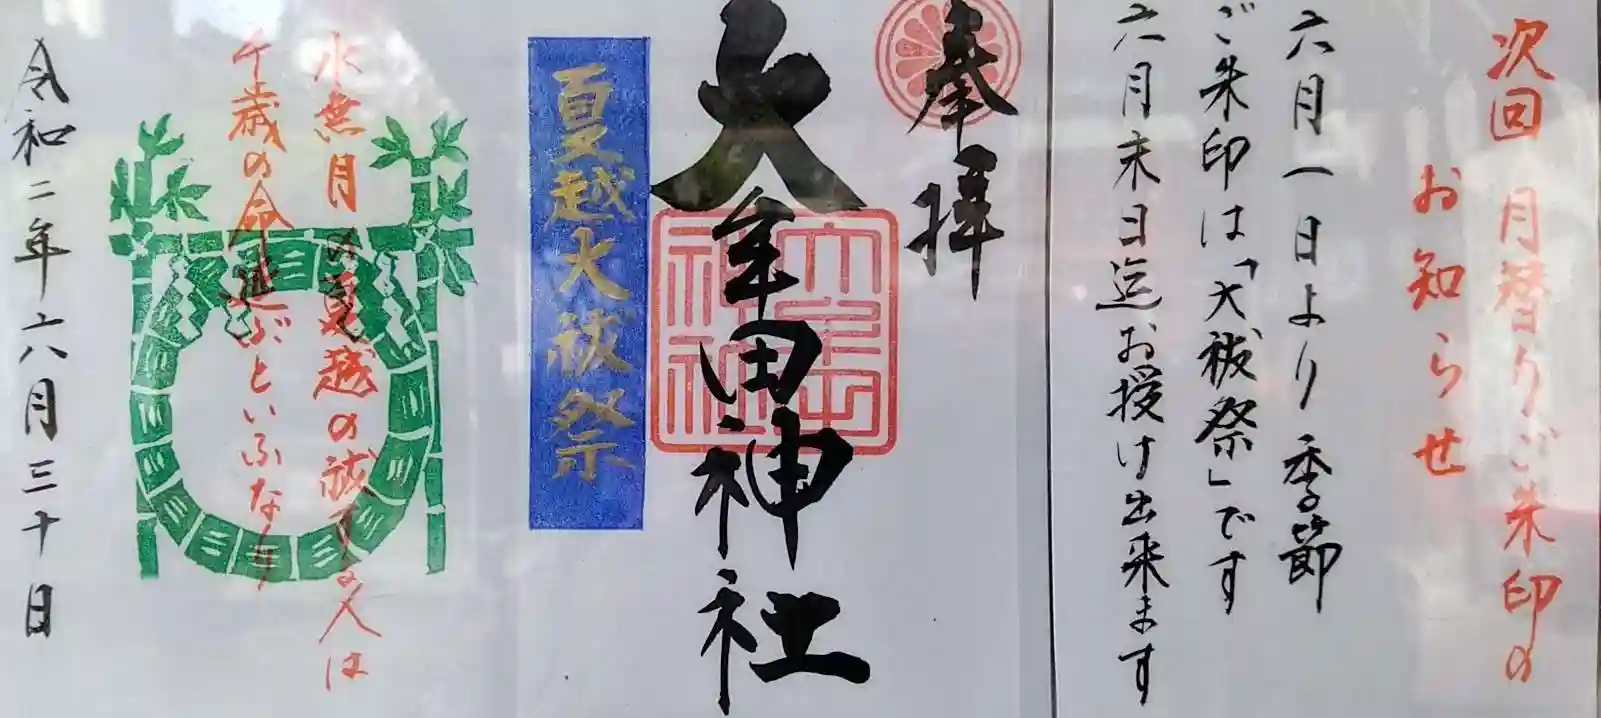 次回 月替りご朱印の
お知らせ
六月一日より 季節
ご朱印は「大祓祭」です
六月末日迄お授け出来ます
奉拝
大牟田神社
夏越大祓祭
水無月の夏越の祓する人は
千歳の命延ぶといふなり
令和二年六月三十日